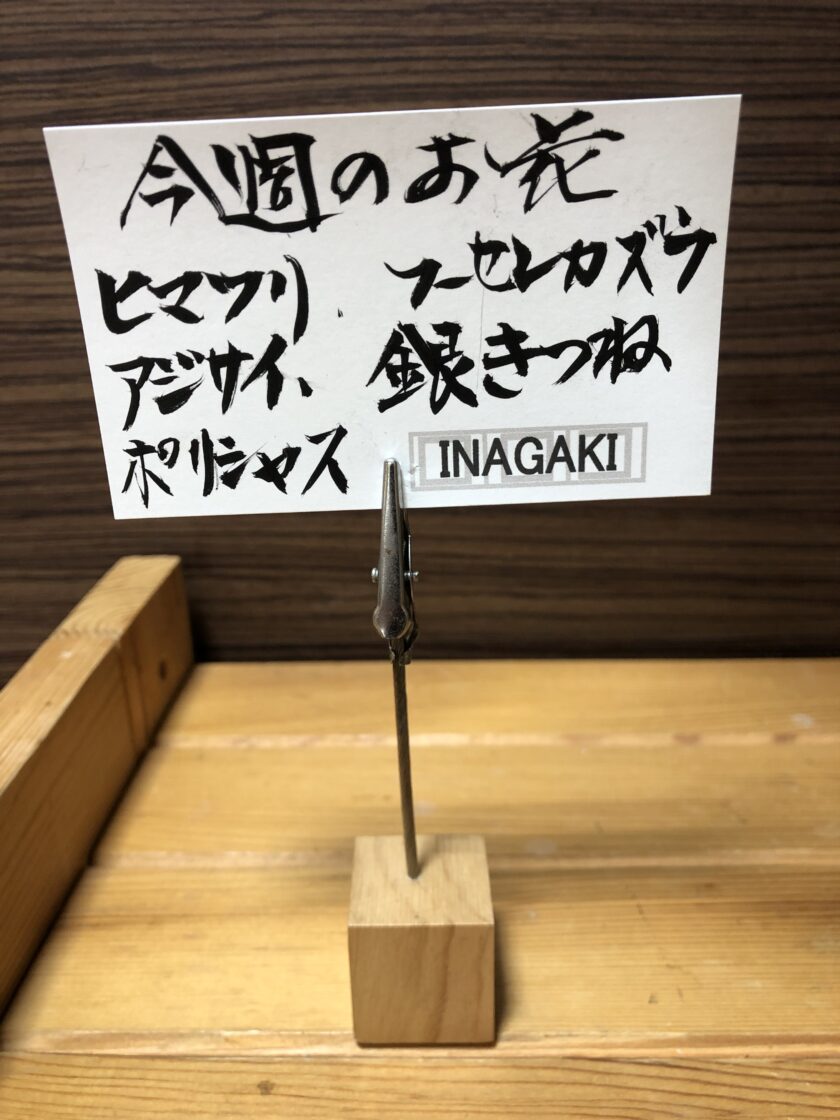 今週のお花
ヒマワリ、フーセンカズラ
アジサイ、銀きつね
ポリシャス
INAGAKI